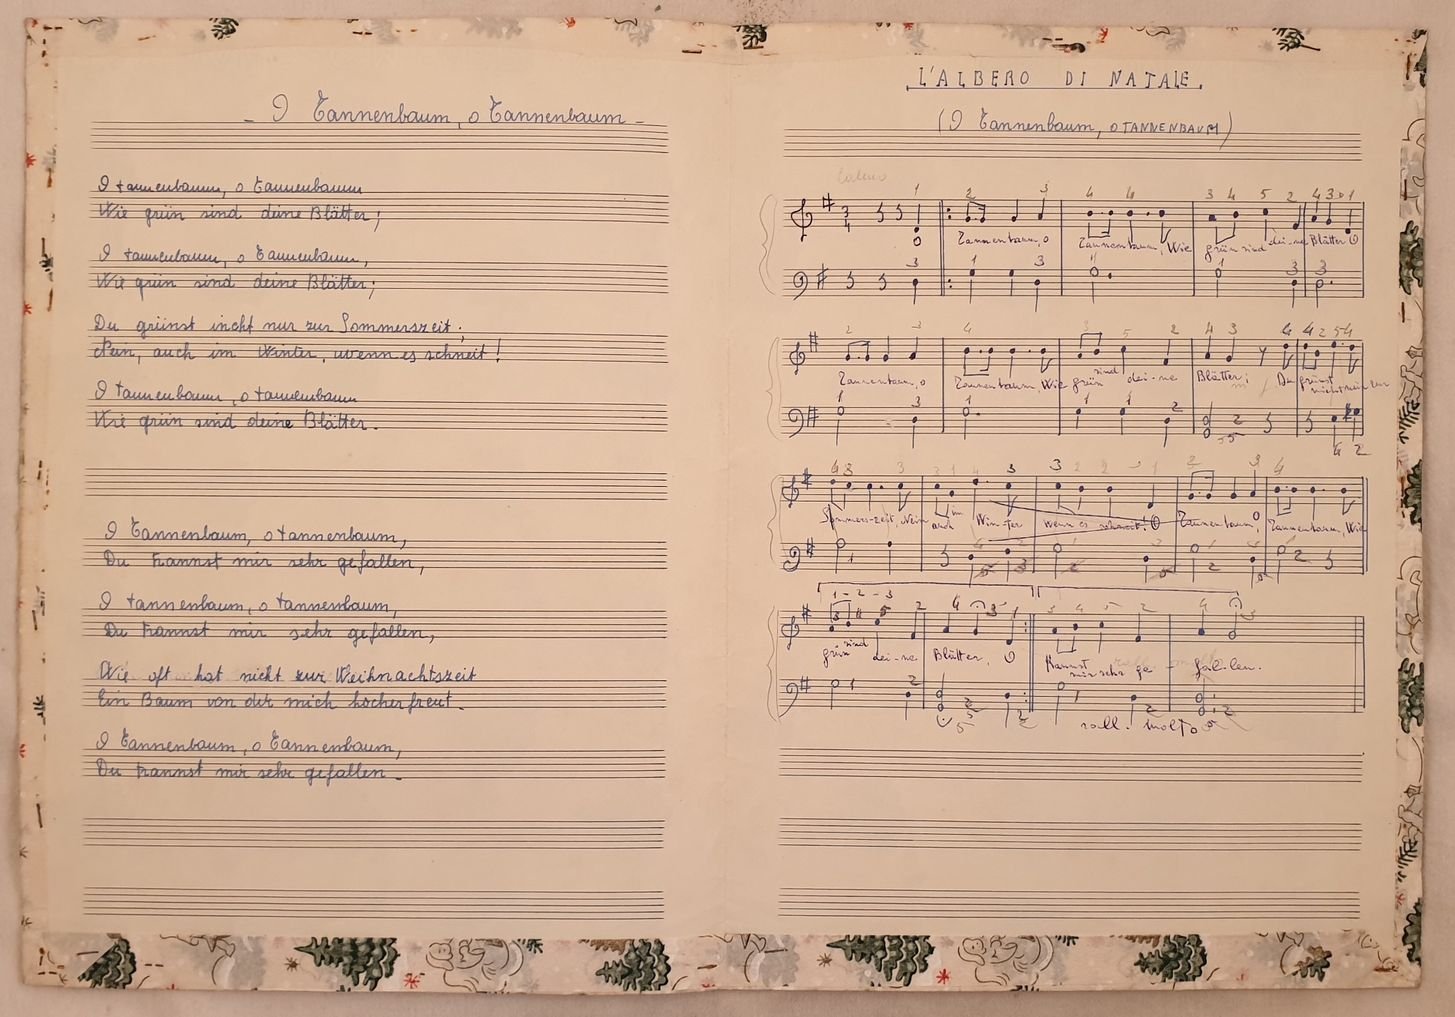 - O Tannenbaum, o Tannenbaum -
O tannenbaum, o Tannenbaum
Wie grün sind deine Blätter;
O tannenbaum, o Tannenbaum,
Wie grün sind deine Blätter;
Du grünst incht nur zur Sommerszeit;
Nein, auch im Winter, wenn es schneit!
O tannenbaum, o tannenbaum
Wie grün sind deine Blätter.
O Tannenbaum, o tannenbaum,
Du kannst mir sehr gefallen,
O tannenbaum, o tannenbaum,
Du kannst mir sehr gefallen,
Wie oft hat nicht zur Weihnachtszeit
Ein Baum von dir mich hocherfreut.
O Tannenbaum, o Tannenbaum,
Du kannst mir sehr gefallen.
L'ALBERO DI NATALE.
(O Tannenbaum, O TANNENBAUM)
Calmo
1 2 3 4 4 3 4 5 2 4 3 1
Tannenbaum, o Tannenbaum, Wie grün sind dei-ne Blätter O
3 1 3 1 1 3 3
2 3 4 3 5 2 4 3 4 4 2 5 4
Tannenbaum, o Tannenbaum, Wie grün sind dei-ne Blätter; Du grünst nicht nur zur
1 3 1 1 1 2 2 5 4 2
4 3 3 3 1 4 3 3 2 2 1 2 3 4
Sommers-zeit, Nein auch im Win-ter wenn es schneit! O Tannenbaum, O Tannenbaum, Wie
1 2 1 2 2
1-2-3
3 4 5 2 4 3 1 3 4 5 2 4 3
grün sind dei-ne Blätter, O Kannst mir sehr ge fal-len.
1 2 2 5 2 1 2 2
rall. molto